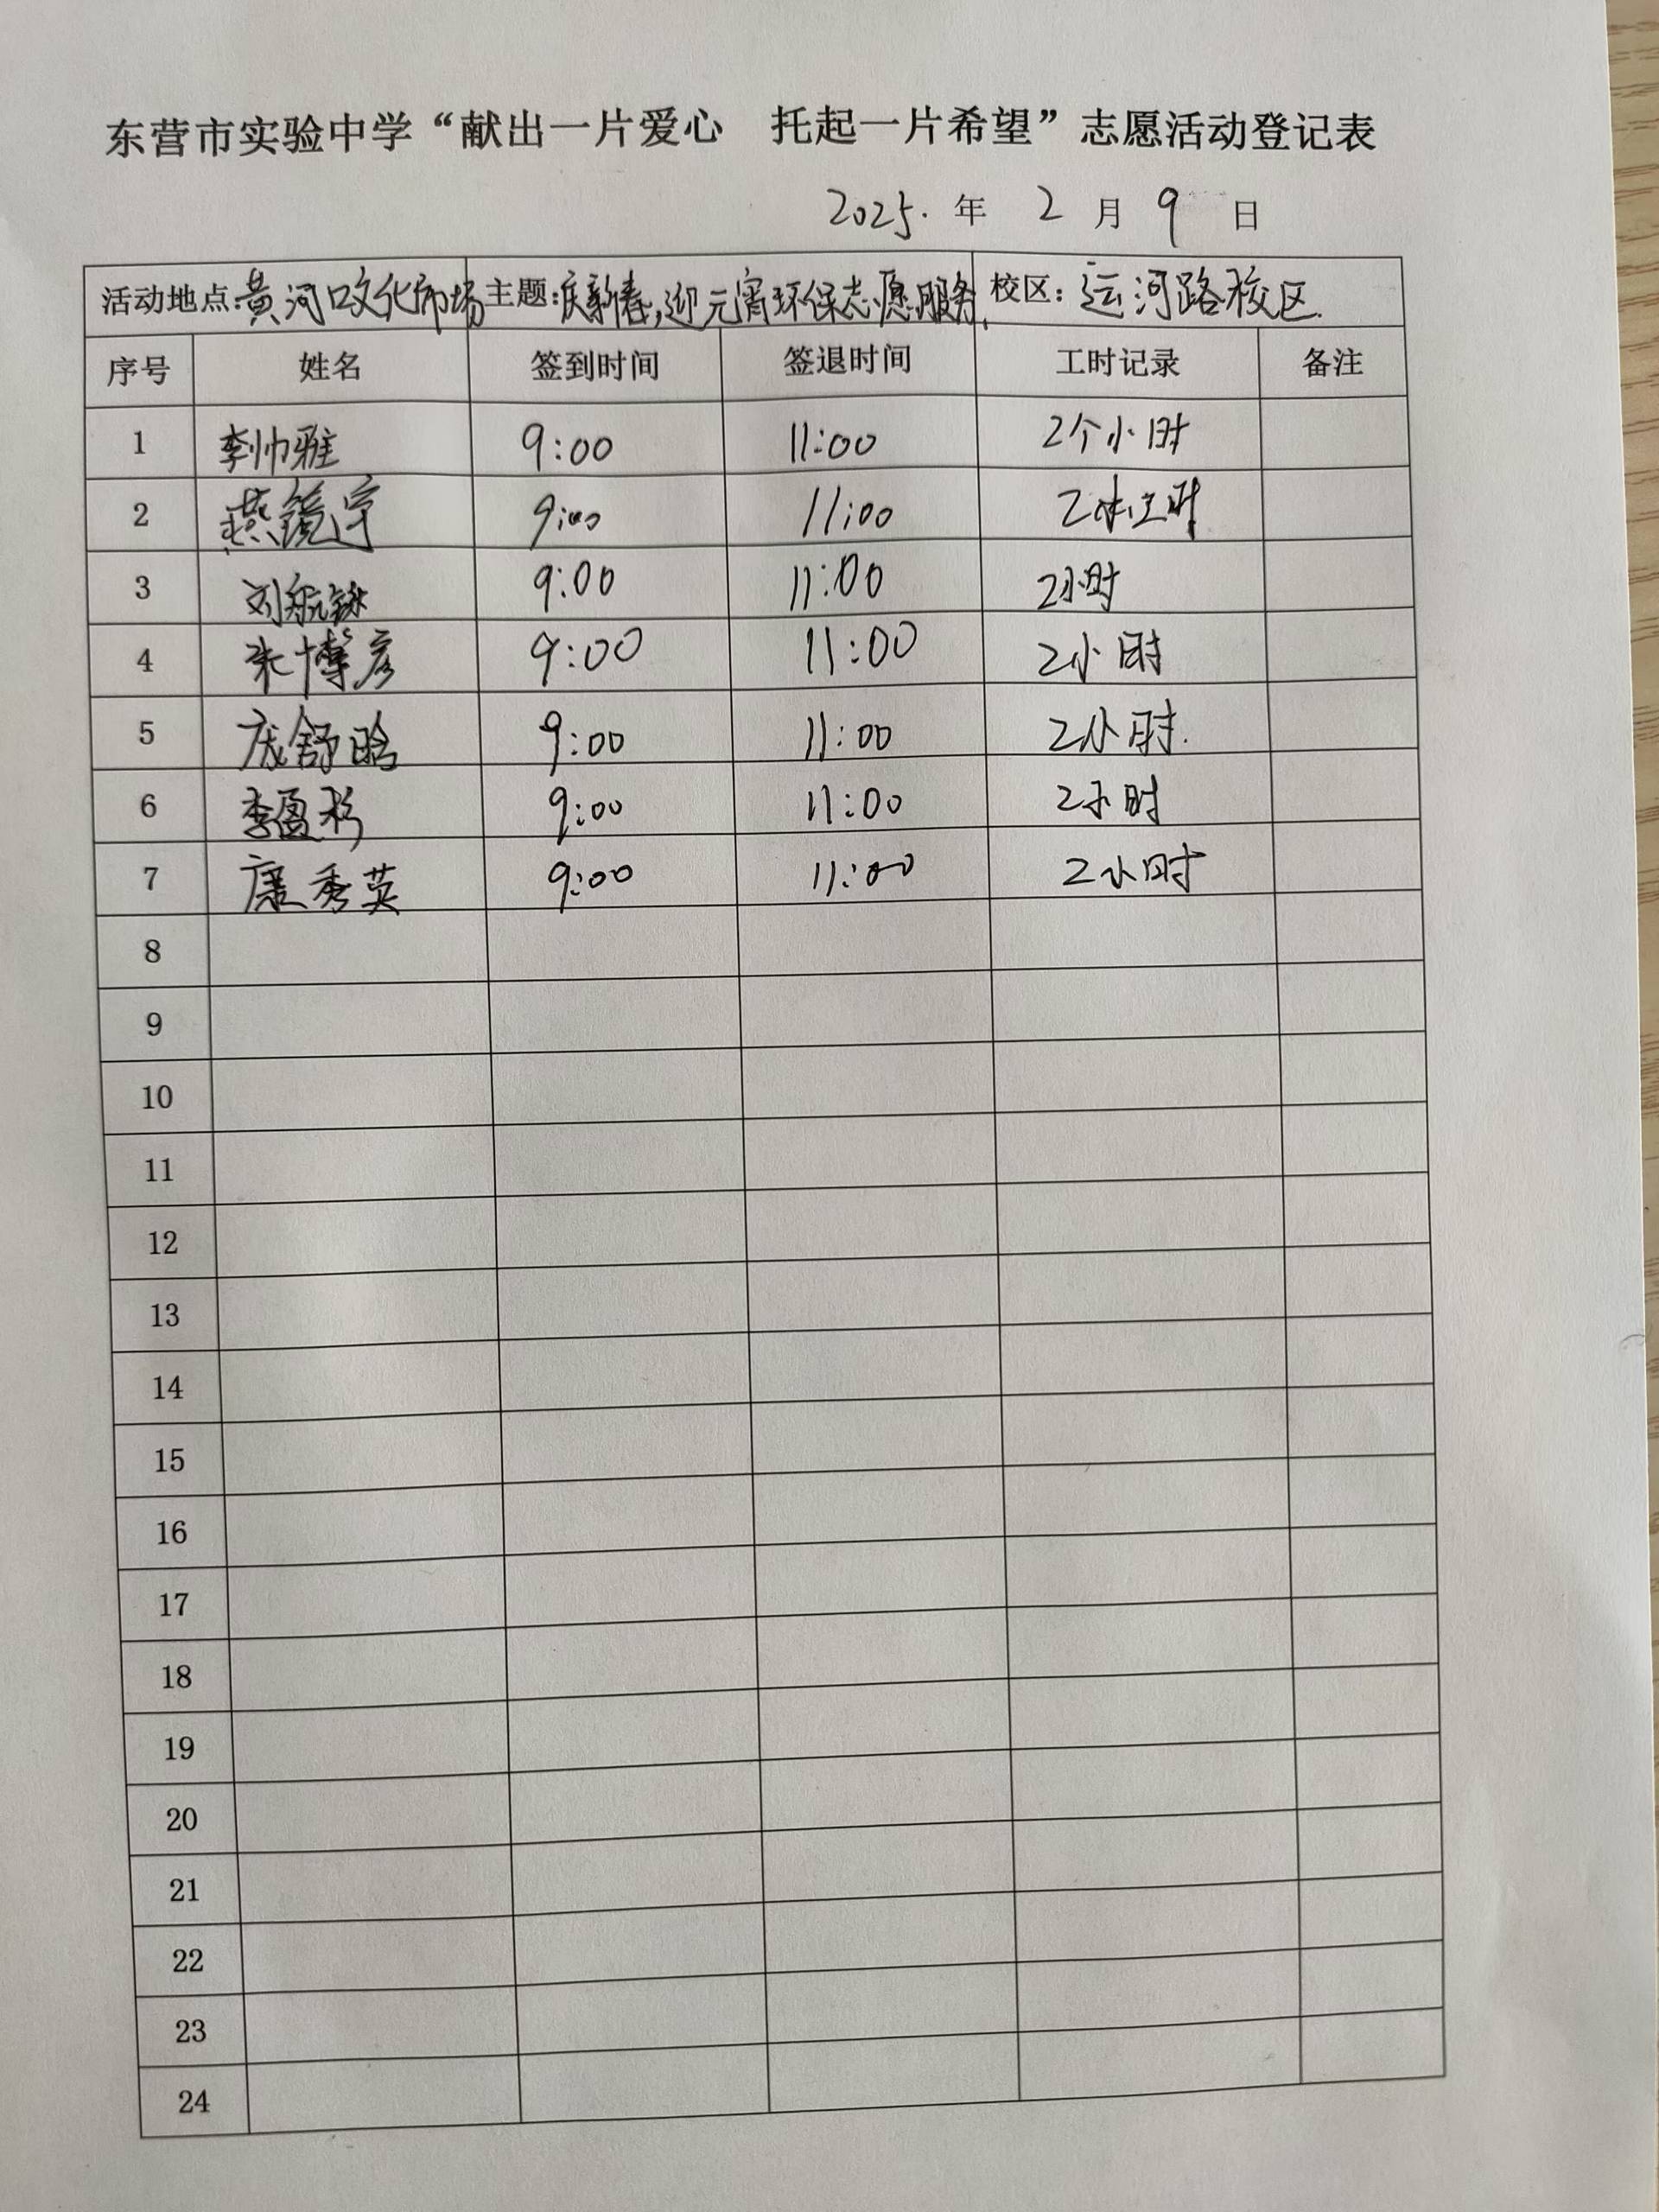 东营市实验中学“献出一片爱心 托起一片希望”志愿活动登记表
2025. 年 2 月 9 日
活动地点:黄河口文化市场 主题:庆新春,迎元宵环保志愿服务. 校区:运河路校区.
序号 姓名 签到时间 签退时间 工时记录 备注
1 李帅雅 9:00 11:00 2个小时
2 燕镜宇 9:00 11:00 2
3 刘航 9:00 11:00 2小时
4 朱博彦 9:00 11:00 2小时
5 庞舒晗 9:00 11:00 2小时.
6 李盈杉 9:00 11:00 2小时
7 康秀英 9:00 11:00 2小时
8
9
10
11
12
13
14
15
16
17
18
19
20
21
22
23
24